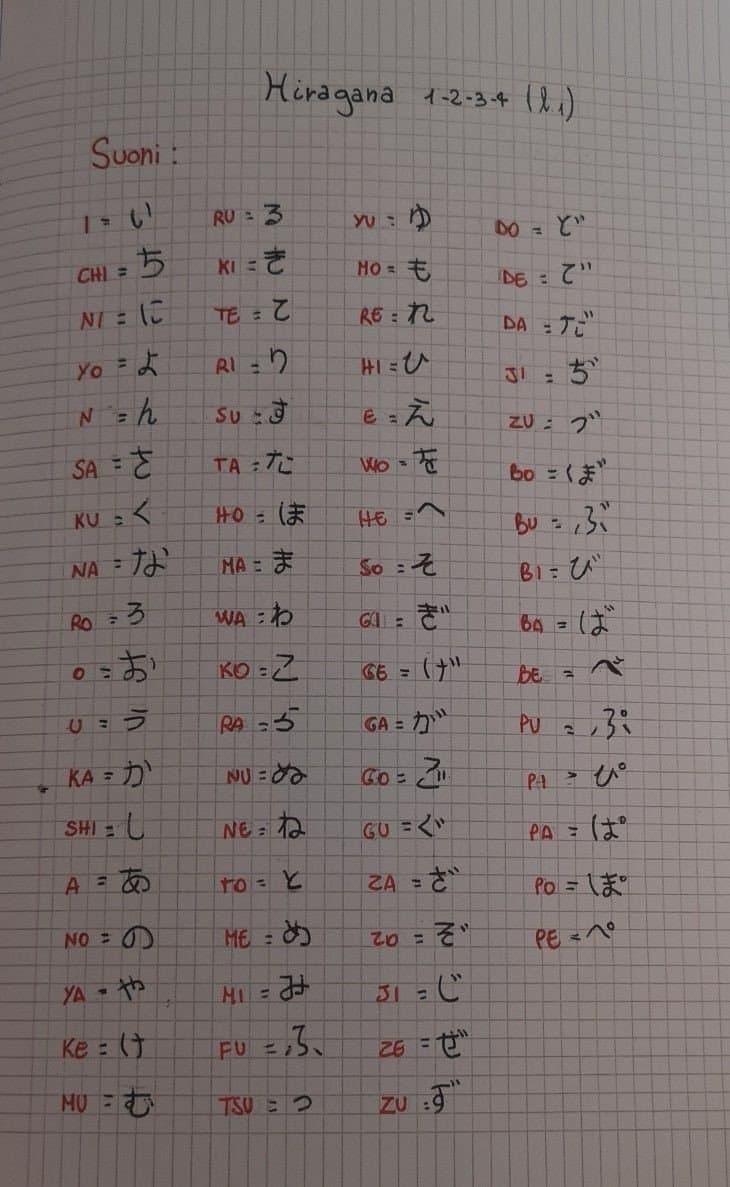 Hiragana 1-2-3-4 (l.1)
Suoni:
I = い
CHI = ち
NI = に
YO = よ
N = ん
SA = さ
KU = く
NA = な
RO = ろ
O = お
U = う
KA = か
SHI = し
A = あ
NO = の
YA = や
KE = け
MU = む
RU = る
KI = き
TE = て
RI = り
SU = す
TA = た
HO = ほ
MA = ま
WA = わ
KO = こ
RA = ら
NU = ぬ
NE = ね
TO = と
ME = め
MI = み
FU = ふ
TSU = つ
YU = ゆ
MO = も
RE = れ
HI = ひ
E = え
WO = を
HE = へ
SO = そ
GI = ぎ
GE = げ
GA = が
GO = ご
GU = ぐ
ZA = ざ
ZO = ぞ
JI = じ
ZE = ぜ
ZU = ず
DO = ど
DE = で
DA = だ
JI = ぢ
ZU = づ
BO = ぼ
BU = ぶ
BI = び
BA = ば
BE = べ
PU = ぷ
PI = ぴ
PA = ぱ
PO = ぽ
PE = ぺ